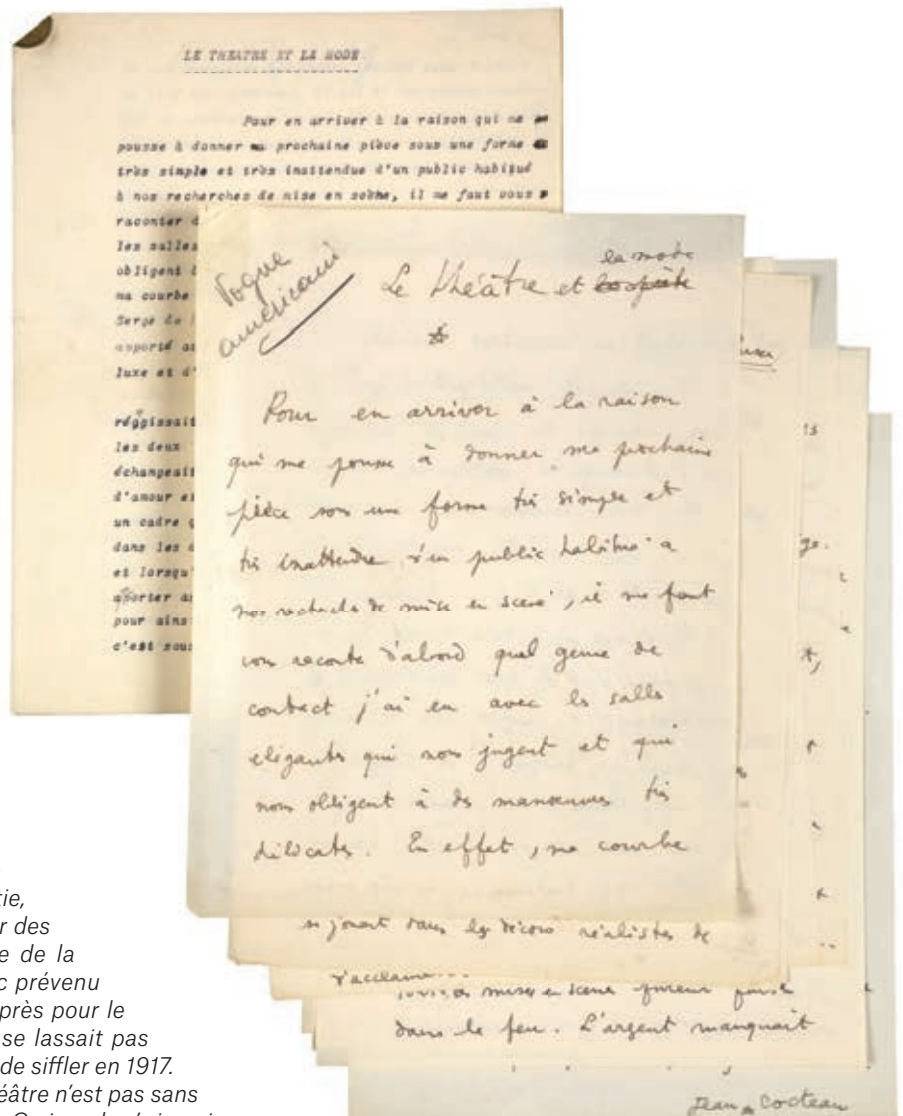 LE THEATRE ET LA MODE.
Pour en arriver à la raison qui me
pousse à donner ma prochaine pièce sous une forme
très simple et très inattendue d'un public habitué
à nos recherches de mise en scène, il me faut vous
raconter d
les salles
obligent à
ma courbe
Serge de
apporté au
luxe et d'
régissait
les deux
échangeait
d'amour et
un cadre
dans les
et lorsqu'
apporter
pour ains
c'est sous
Vogue
américain
la mode
Le théâtre et
Pour en arriver à la raison
qui me pousse à donner ma prochaine
pièce sous une forme très simple et
très inattendue d'un public habitué à
nos recherches de mise en scène, il me faut
vous raconter d'abord quel genre de
contact j'ai eu avec les salles
élégantes qui nous jugent et qui
nous obligent à des manœuvres très
délicates. En effet, ma courbe
se jouait dans les décors réalistes de
mises en scène
dans le feu. L'argent manquait
Jean Cocteau
tie,
r des
e de la
c prévenu
près pour le
se lassait pas
de siffler en 1917.
éâtre n'est pas sans